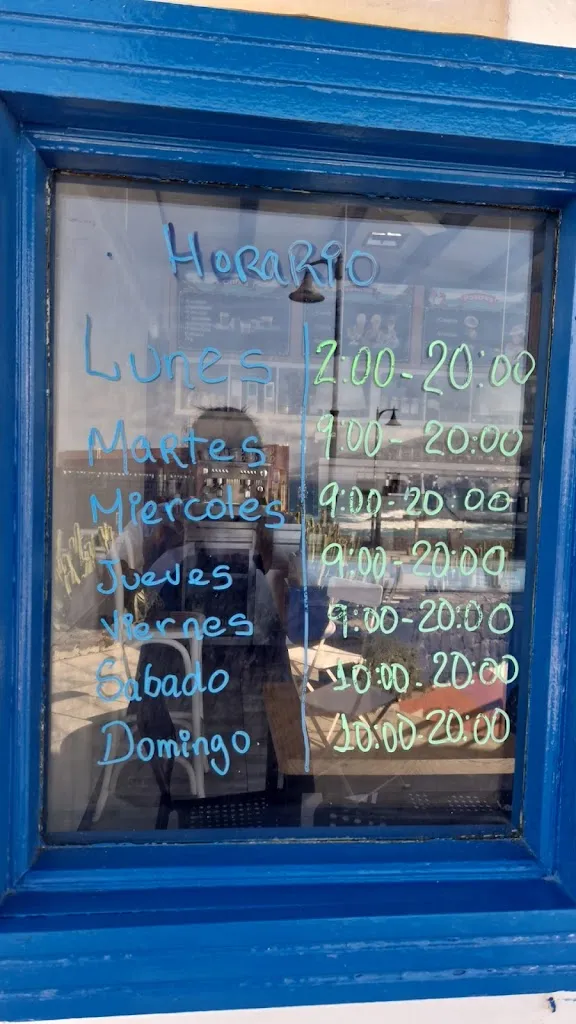 HORARIO
Lunes 2:00-20:00
Martes 9:00-20:00
Miercoles 9:00-20:00
Jueves 9:00-20:00
Viernes 9:00-20:00
Sabado 10:00-20:00
Domingo 10:00-20:00